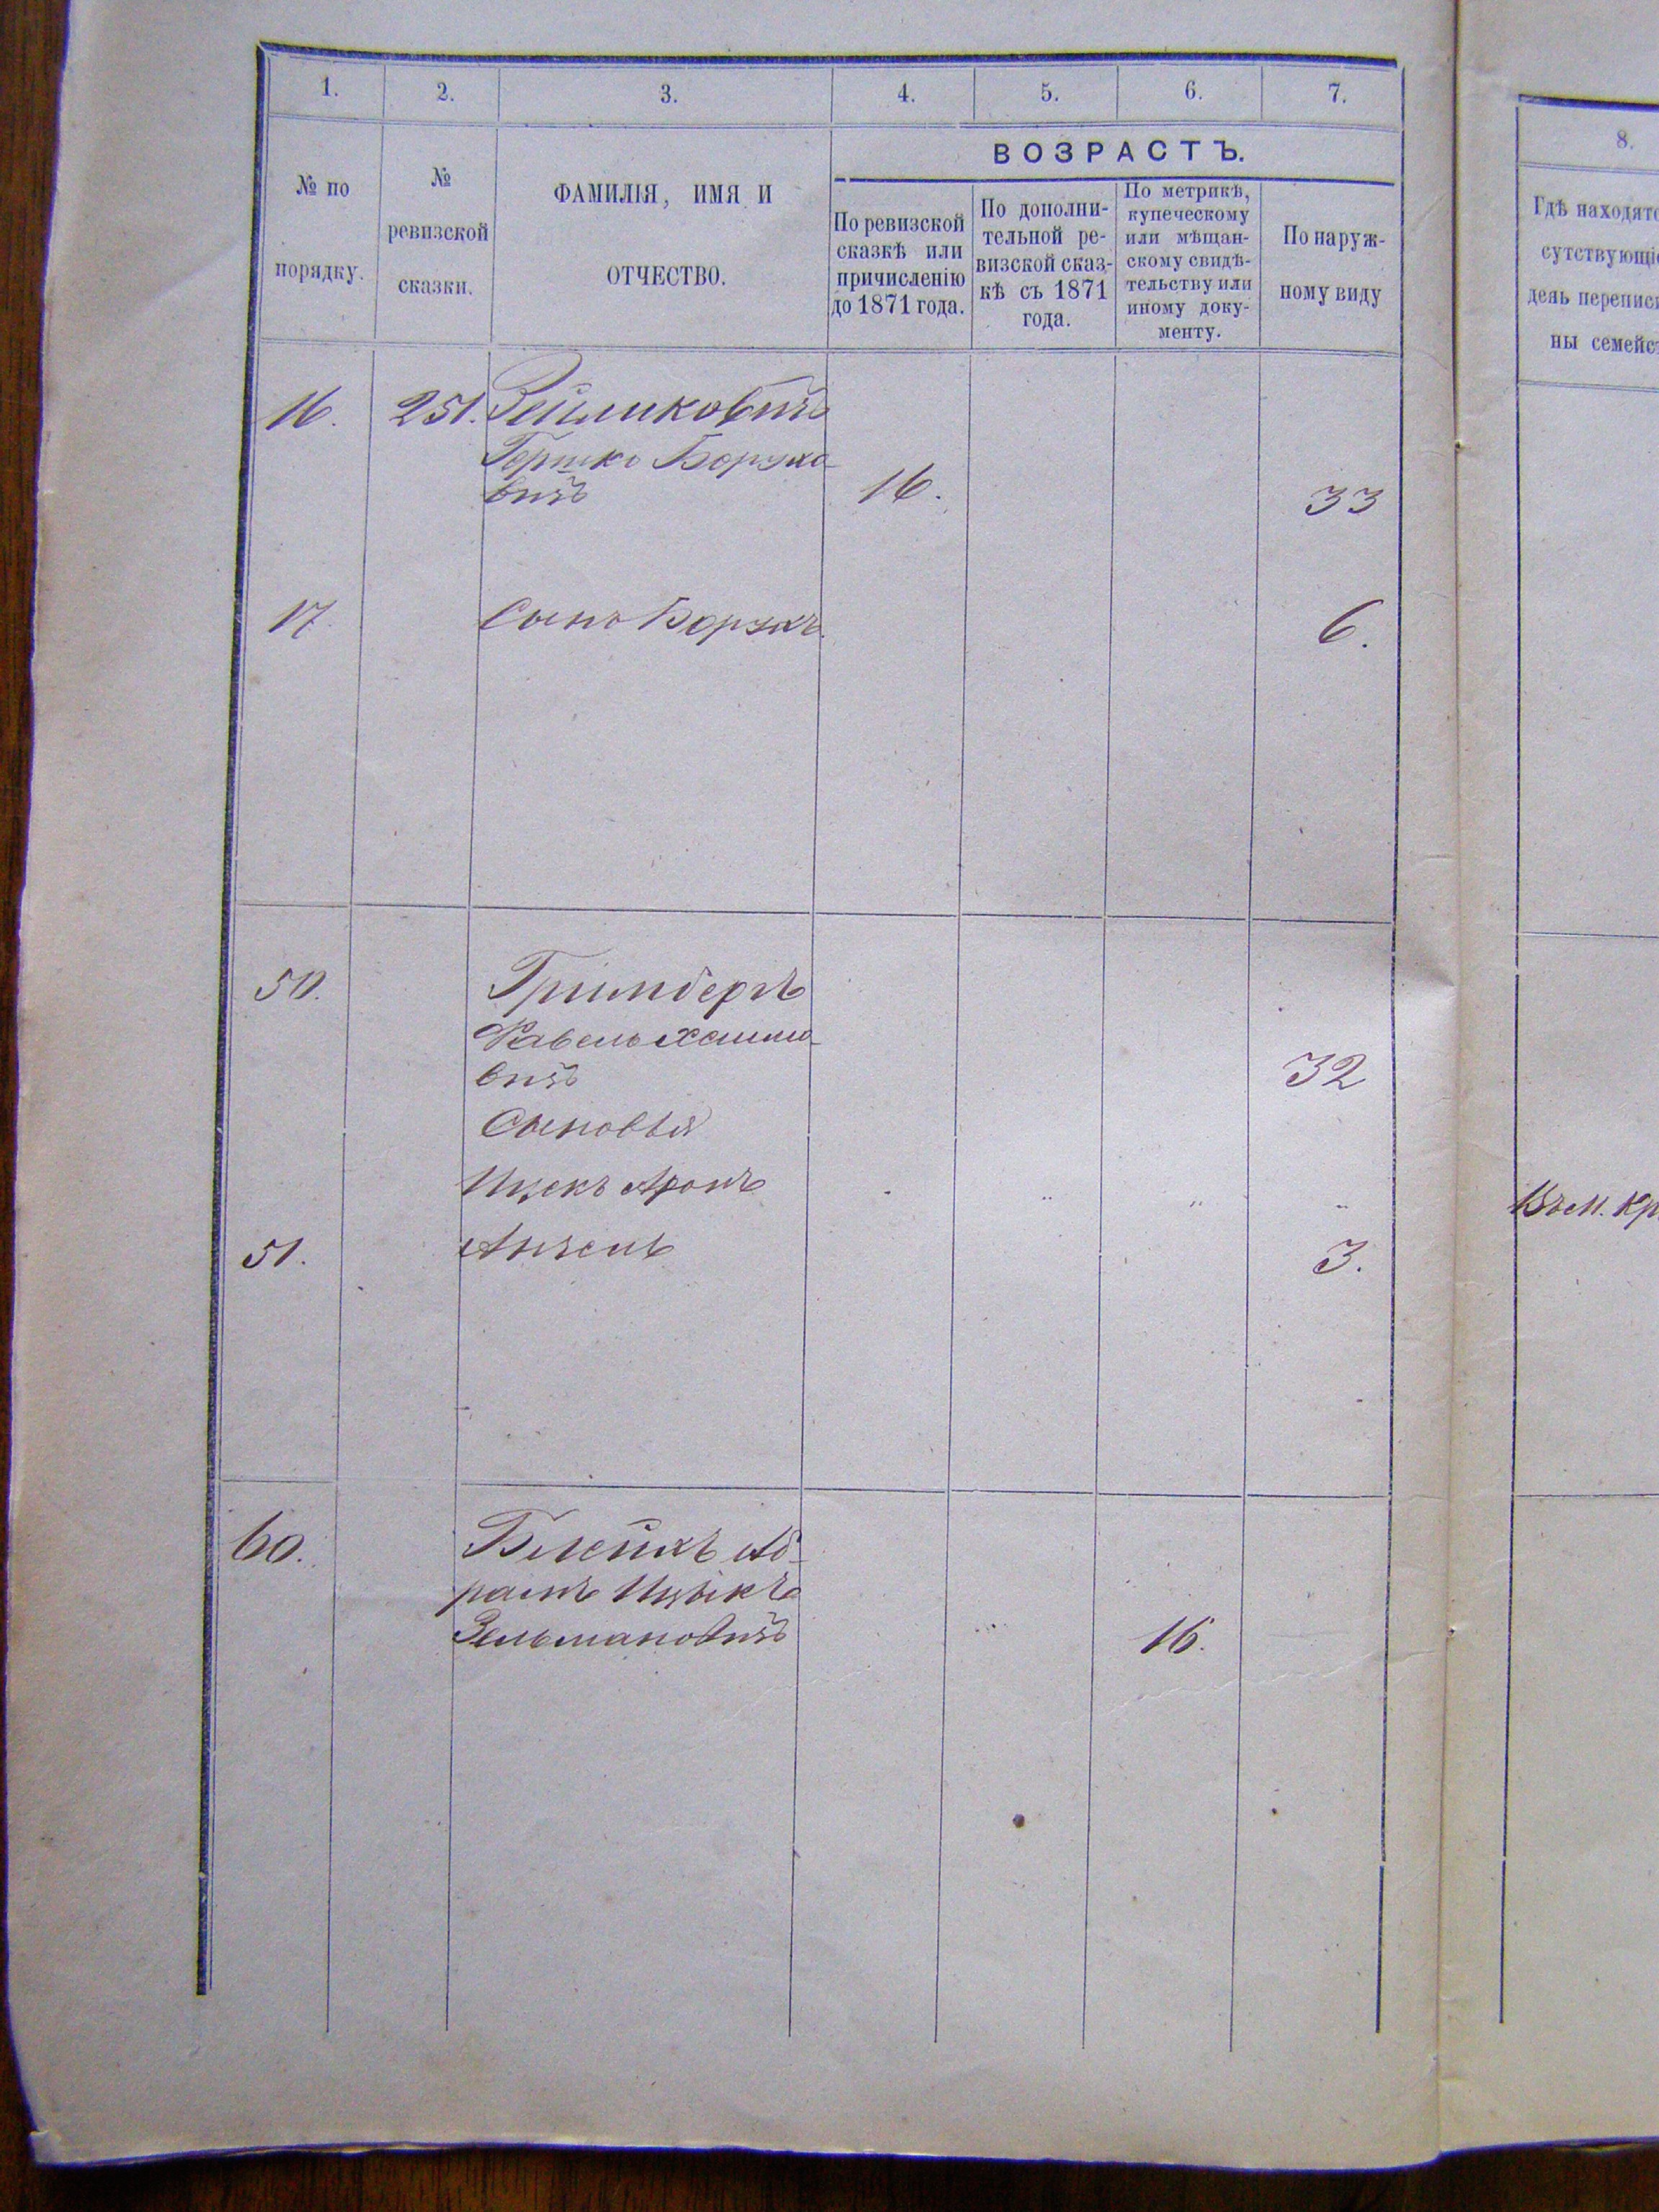 1. 2. 3. 4. 5. 6. 7.
№ по
порядку.
№
ревизской
сказки.
ФАМИЛІЯ, ИМЯ И
ОТЧЕСТВО.
ВОЗРАСТЪ.
По ревизской
сказкѣ или
причисленію
до 1871 года.
По дополни-
тельной ре-
визской сказ-
кѣ съ 1871
года.
По метрикѣ,
купеческому
или мѣщан-
скому свидѣ-
тельству или
иному доку-
менту.
По наруж-
ному виду
16. 251. Зейликовичъ
Гершко Борухо-
вичъ 16. 33
17. Сынъ Борухъ 6.
50. Гринбергъ
Фавель Хаимо-
вичъ 32
Сыновья
Ицекъ Аронъ
51. Анзель 3.
60. Блейхъ Аб-
рамъ Ицыкъ
Зельмановичъ 16.
8.
Гдѣ находятс
сутствующіе
день переписи
ны семейс